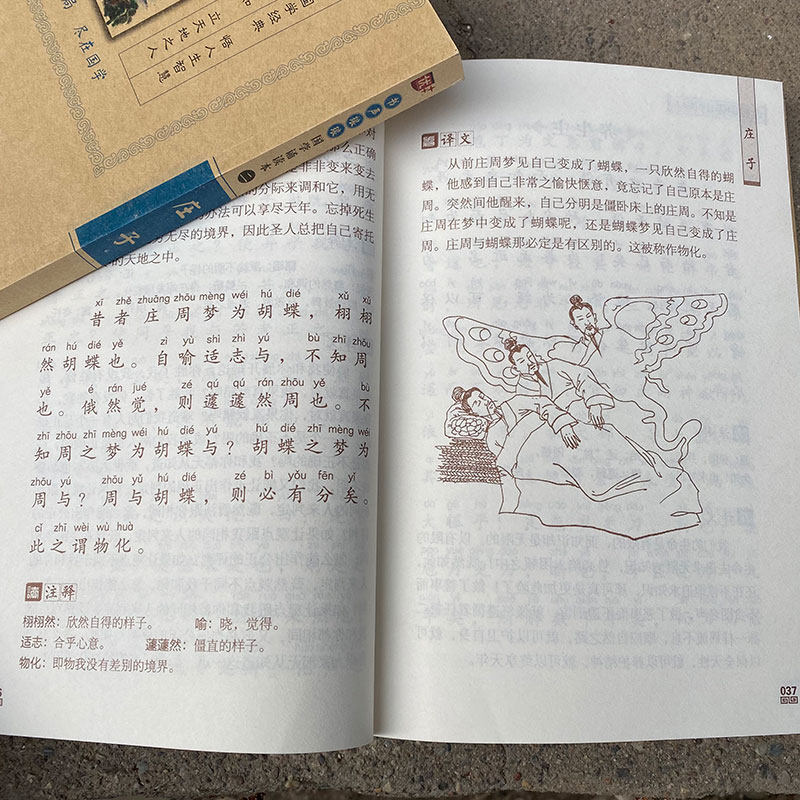 尽在国学
立天地之人
悟人生智慧
国学经典
书声琅琅
国学诵读本
庄子
对
么正确
是非非变来变去
的分际来调和它，用无
办法可以享尽天年。忘掉死生
无尽的境界，因此圣人总把自己寄托
的天地之中。
xī zhě zhuāng zhōu mèng wéi hú dié xǔ xǔ
昔者庄周梦为胡蝶，栩栩
rán hú dié yě zì yù shì zhì yú bù zhī zhōu
然胡蝶也。自喻适志与，不知周
yě é rán jué zé qú qú rán zhōu yě bù
也。俄然觉，则蘧蘧然周也。不
zhī zhōu zhī mèng wéi hú dié yú hú dié zhī mèng wéi
知周之梦为胡蝶与？胡蝶之梦为
zhōu yú zhōu yǔ hú dié zé bì yǒu fēn yǐ
周与？周与胡蝶，则必有分矣。
cǐ zhī wèi wù huà
此之谓物化。
注释
栩栩然：欣然自得的样子。 喻：晓，觉得。
适志：合乎心意。 蘧蘧然：僵直的样子。
物化：即物我没有差别的境界。
庄子
译文
从前庄周梦见自己变成了蝴蝶，一只欣然自得的蝴
蝶，他感到自己非常之愉快惬意，竟忘记了自己原本是庄
周。突然间他醒来，自己分明是僵卧床上的庄周。不知是
庄周在梦中变成了蝴蝶呢，还是蝴蝶梦见自己变成了庄
周。庄周与蝴蝶那必定是有区别的。这被称作物化。
037